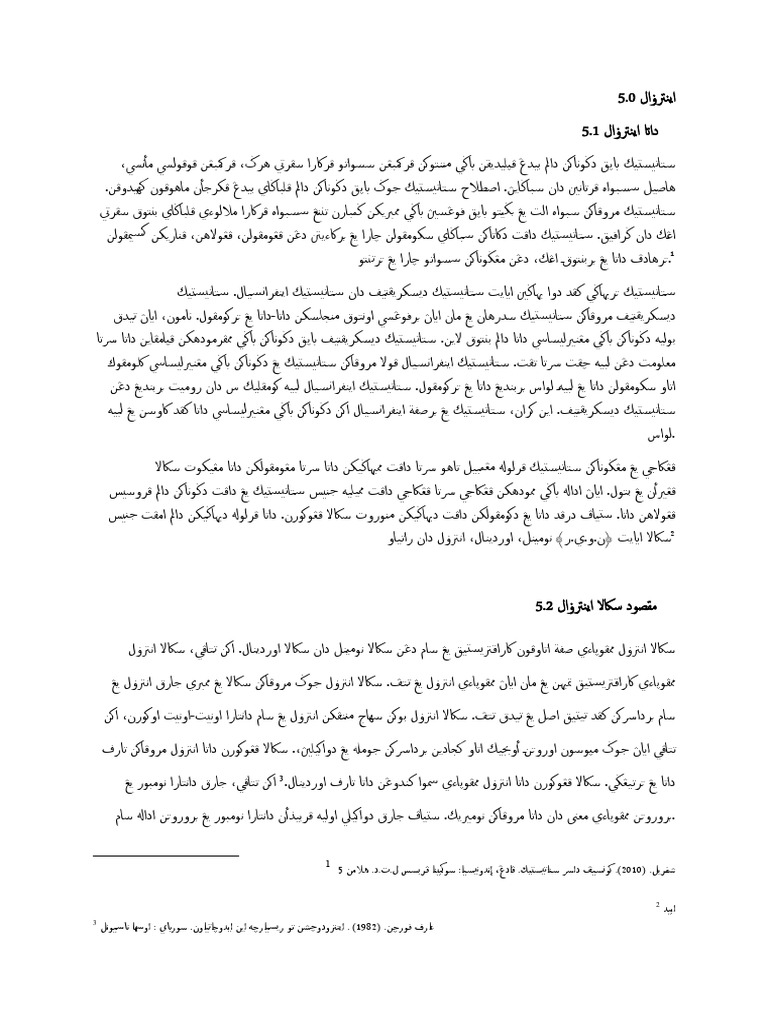 5.0 اينترۏال
5.1 داتا اينترۏال
ستاتيستيك بايق دݢوناكن دالم بيدڠ ڤيليديقن باݢي منتوكن ڤركمبڠن سسواتو ڤركارا سڤرتي هرݢ، ڤركمبڠن ڤوڤولسي مأنسي،
هاصيل سسبواه ڤرتانين دان سباݢاين. اصطلاح ستاتيستيك جوݢ بايق دݢوناكن دالم ڤلباݢاي بيدڠ ڤكرجأن ماهوڤون كهيدوڤن.
ستاتيستيك مروڤاكن سبواه الت يڠ بݢيتو بايق فوڠسين باݢي ممبريكن ݢمبارن تنتڠ سسبواه ڤركارا ملالوءي ڤلباݢاي بنتوق سڤرتي
اڠك دان ݢرافيق. ستاتيستيك داڤت دكاتاكن سباݢاي سكومڤولن چارا يڠ بركاءيتن دڠن ڤڠومڤولن، ڤڠولاهن، ڤناريكن كسيمڤولن
ترهادڤ داتا يڠ بربنتوق اڠك، دڠن مڠݢوناكن سسواتو چارا يڠ ترتنتو.1
ستاتيستيك تربهاݢي كڤد دوا بهاݢين ايايت ستاتيستيك ديسكريڤتيف دان ستاتيستيك اينفرانسيال. ستاتيستيك
ديسكريڤتيف مروڤاكن ستاتيستيك سدرهان يڠ مان ايان برفوڠسي اونتوق منجلسكن داتا-داتا يڠ تركومڤول. نامون، ايان تيدق
بوليه دݢوناكن باݢي مڠنيرليساسي داتا دالم بنتوق لاين. ستاتيستيك ديسكريڤتيف بايق دݢوناكن باݢي ممڤرمودهكن ڤيمڤاين داتا سرتا
معلومت دڠن لبيه چڤت سرتا تڤت. ستاتيستيك اينفرانسيال ڤولا مروڤاكن ستاتيستيك يڠ دݢوناكن باݢي مڠنيرليساسي كلومڤوك
اتاو سكومڤولن داتا يڠ لبيه لواس بربنديڠ داتا يڠ تركومڤول. ستاتيستيك اينفرانسيال لبيه كومڤليك س دان روميت بربنديڠ دڠن
ستاتيستيك ديسكريڤتيف. اين كران، ستاتيستيك يڠ برصفة اينفرانسيال اكن دݢوناكن باݢي مڠنيرليساسي داتا كڤد كاوسن يڠ لبيه
لواس.
ڤڠكاجي يڠ مڠݢوناكن ستاتيستيك ڤرلوله مڠمبيل تاهو سرتا داڤت ممبهاݢيكن داتا سرتا مڠومڤولكن داتا مڠيكوت سكالا
ڤڠيرأن يڠ بتول. ايان اداله باݢي ممودهكن ڤڠكاجي سرتا ڤڠكاجي داڤت مميليه جنيس ستاتيستيك يڠ داڤت دݢوناكن دالم ڤروسيس
ڤڠولاهن داتا. ستياڤ درڤد داتا يڠ دكومڤولكن داڤت دبهاݢيكن منوروت سكالا ڤڠوكورن. داتا ڤرلوله دبهاݢيكن دالم امڤت جنيس
سكالا ايايت (ن.و.ي.ر) نومينل، اوردينال، انترۏل دان راتياو2
5.2 مقصود سكالا اينترۏال
سكالا انترۏل ممڤوياءي صفة اتاوڤون كارافتريستيق يڠ سام دڠن سكالا نومينل دان سكالا اوردينال. اكن تتاڤي، سكالا انترۏل
ممڤوياءي كارافتريستيق تمبهن يڠ مان ايان ممڤوياءي انترۏل يڠ تتڤ. سكالا انترۏل جوݢ مروڤاكن سكالا يڠ ممبري جارق انترۏل يڠ
سام برداسركن كڤد تيتيق اصل يڠ تيدق تتڤ. سكالا انترۏل بوكن سهاج منتڤكن انترۏل يڠ سام دانتارا اونيت-اونيت اوكورن، اكن
تتاڤي ايان جوݢ ميوسون اوروتن أوبجيك اتاو كجادين برداسركن جومله يڠ دواكيلين،. سكالا ڤڠوكورن داتا انترۏل مروڤاكن تارف
داتا يڠ ترتيڠݢي. سكالا ڤڠوكورن داتا انترۏل ممڤوياءي سموا كندوڠن داتا تارف اوردينال.3 اكن تتاڤي، جارق دانتارا نومبور يڠ
بروروتن ممڤوياءي معنى دان داتا مروڤاكن نوميريك. ستياڤ جارق دواكيلي اوليه ڤربيذأن دانتارا نومبور يڠ بروروتن اداله سام.
1 شفريل. (2010). كونسيڤ داسر ستاتيستيك. ڤادڠ، إندونيسيا: سوكبينا ڤريسس ل.ت.د. هلامن 5
2 ايبد
3 عارف فورچن. (1982) . اينترودوچشن تو ريسيارچه اين ايدوچاتياون. سورباي : اوسها ناسيونل